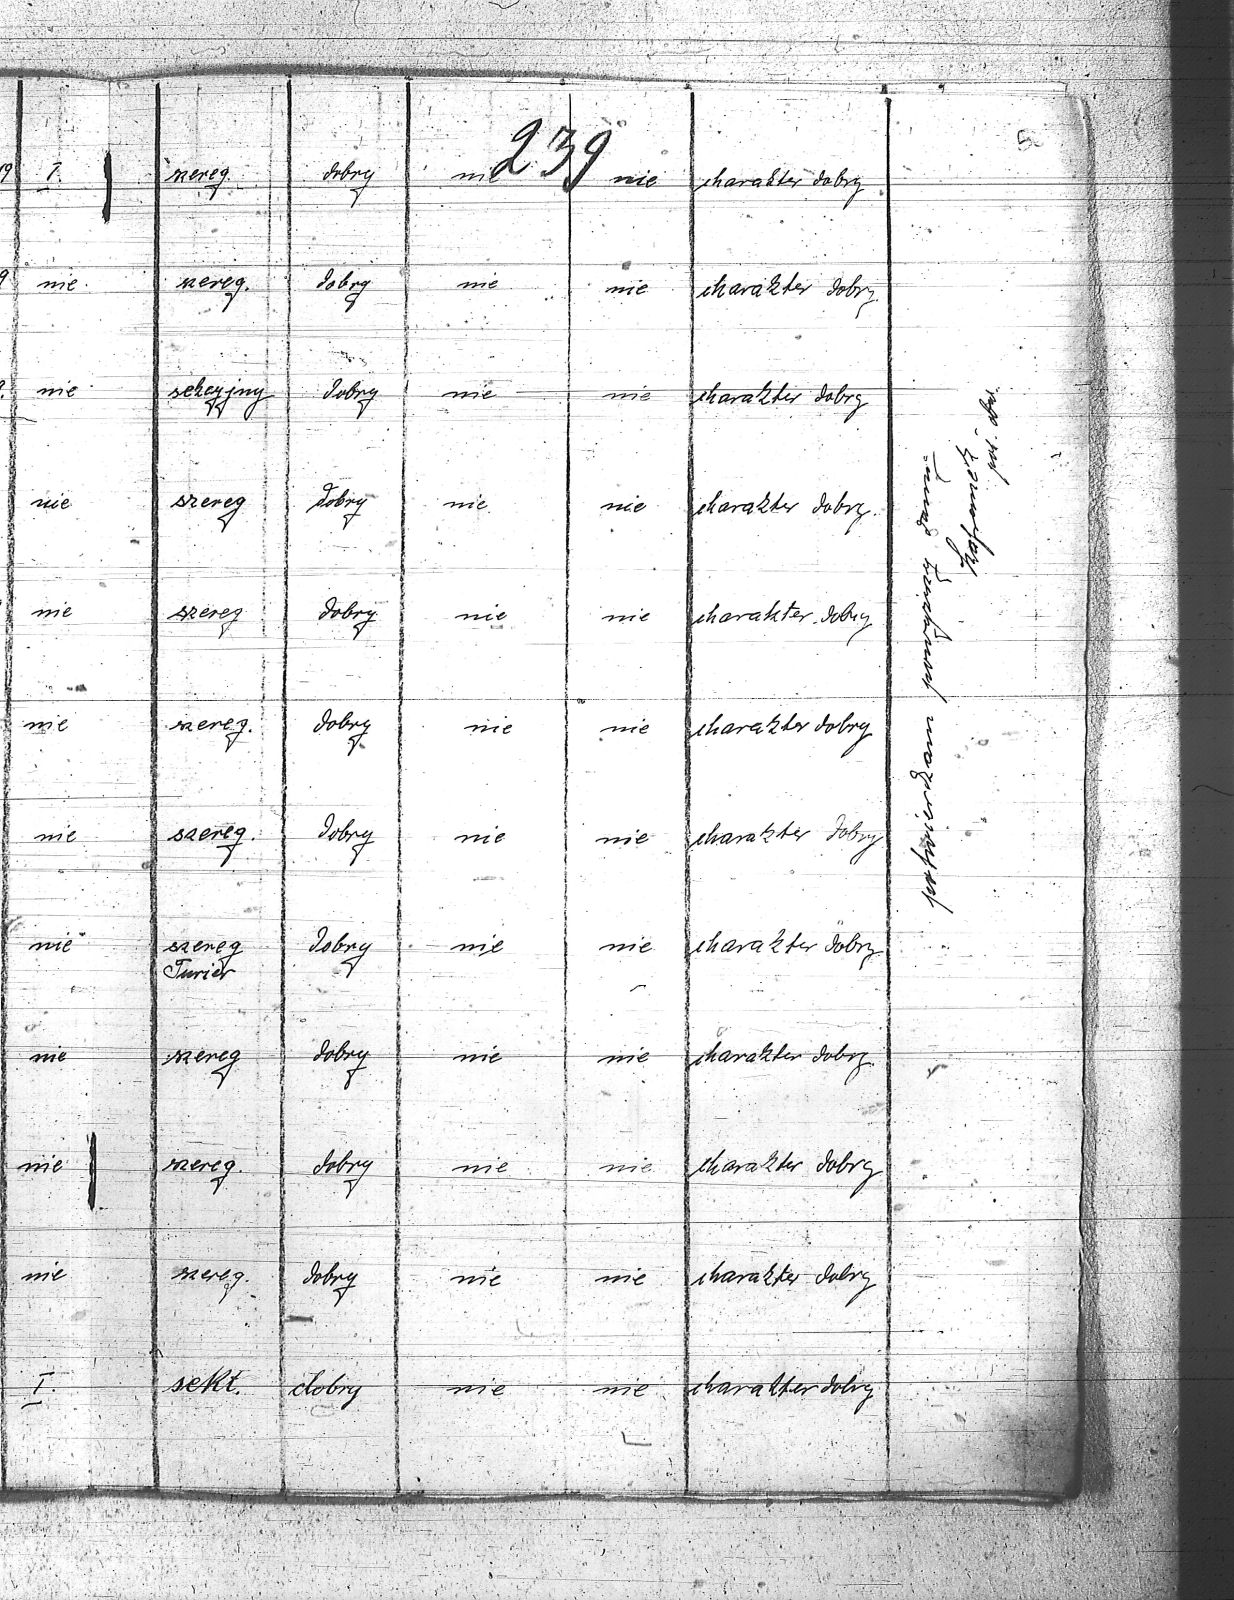 239
19 I szereg dobry nie nie charakter dobry
9 nie szereg. dobry nie nie charakter dobry
nie sekcyjny dobry nie nie charakter dobry
nie szereg dobry nie nie charakter dobry.
nie szereg dobry nie nie charakter dobry
nie szereg. dobry nie nie charakter dobry
nie szereg. dobry nie nie charakter dobry
nie szereg dobry nie nie charakter dobry
Furier
nie szereg dobry nie nie charakter dobry
nie szereg. dobry nie nie charakter dobry
nie szereg. dobry nie nie charakter dobry
I. sekt. dobry nie nie charakter dobry